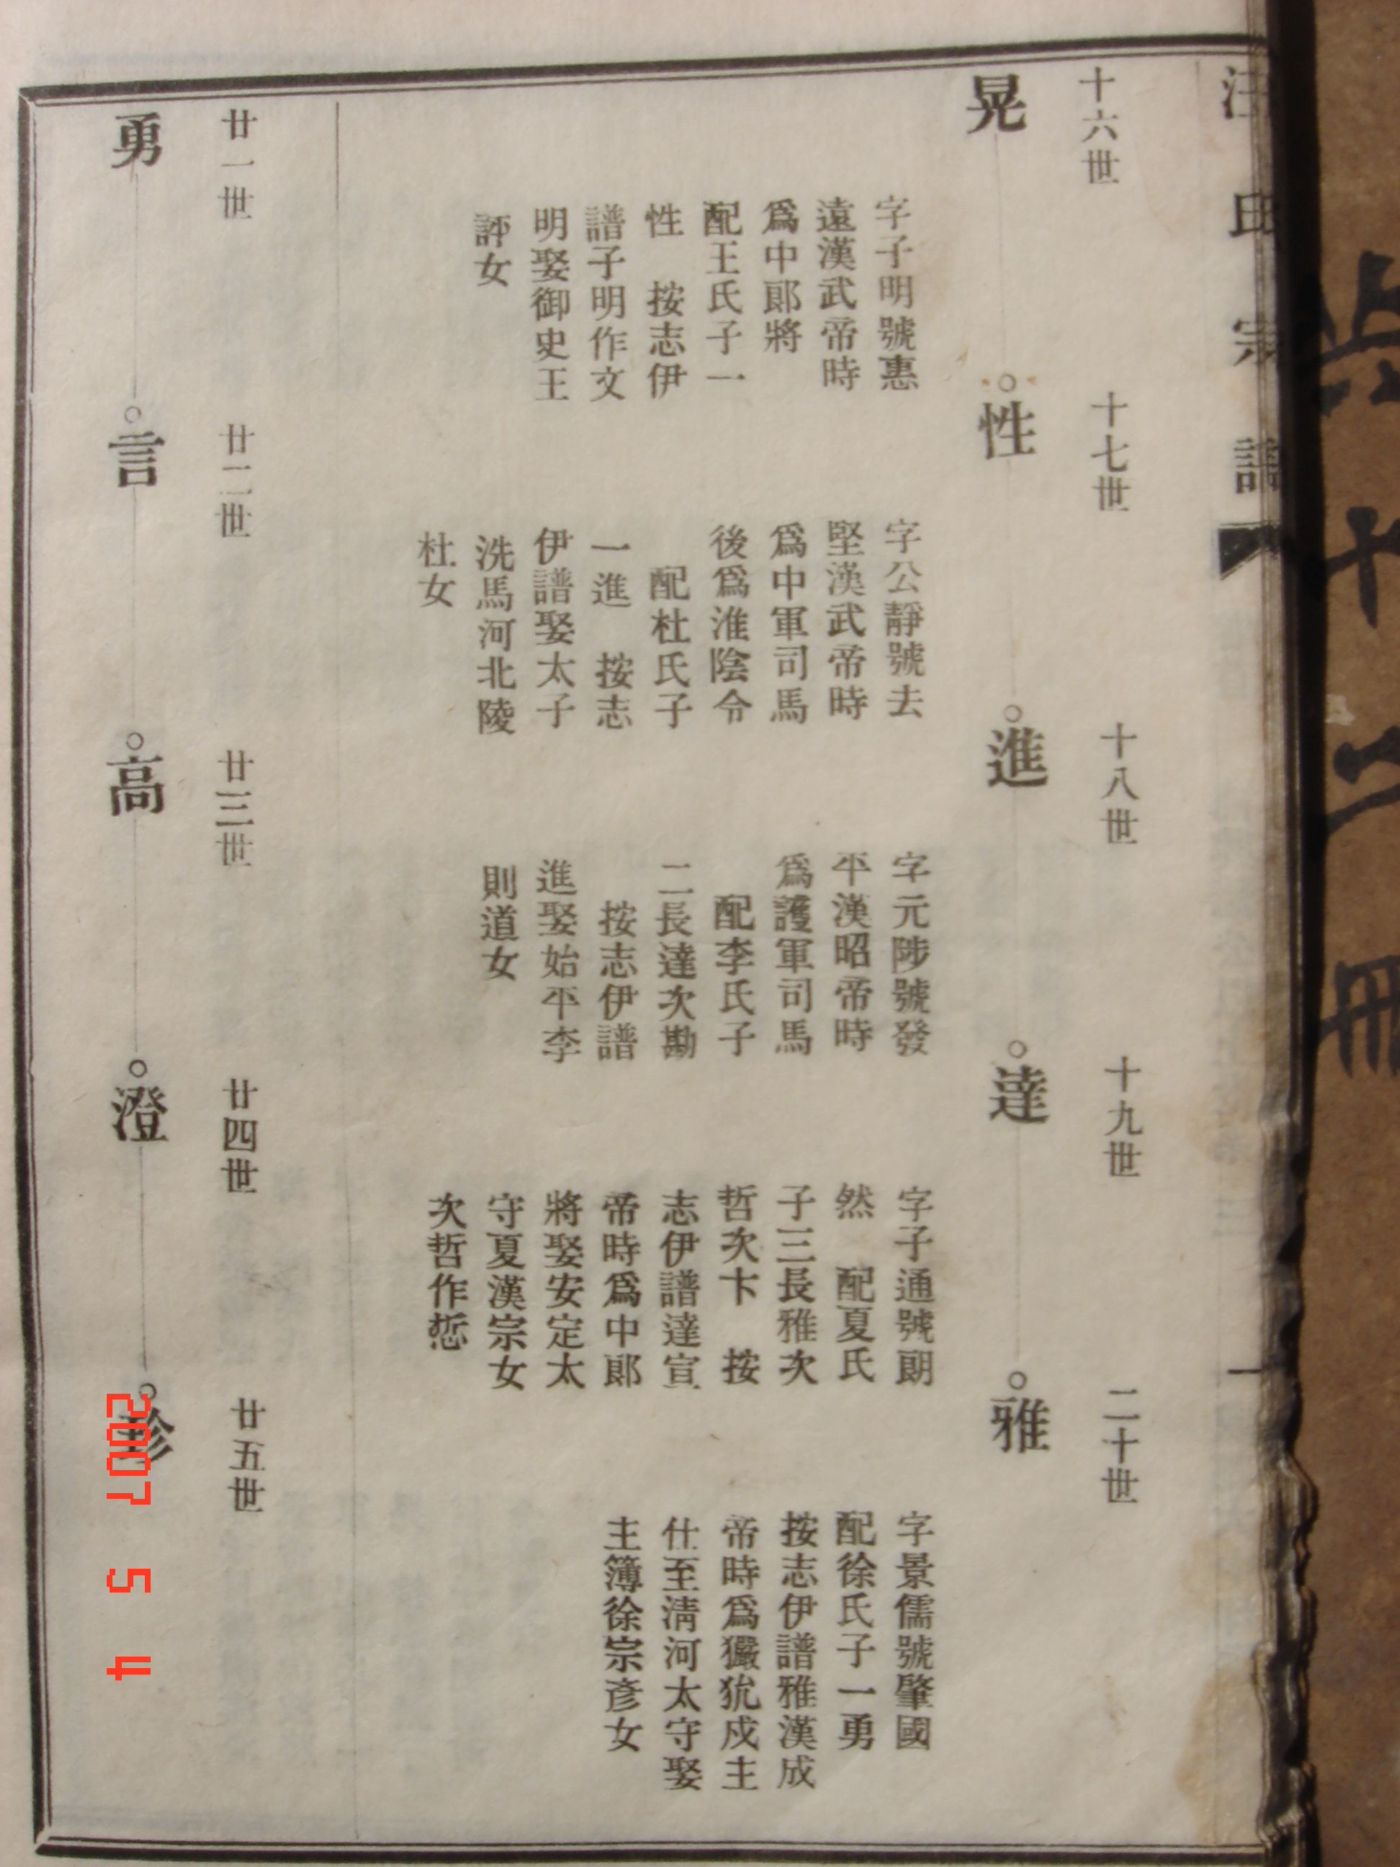 汪氏宗譜
一
十六世
十七世
十八世
十九世
二十世
晃
性
進
達
雅
字子明號惠
遠漢武帝時
為中郎將
配王氏子一
性 按志伊
譜子明作文
明娶御史王
評女
字公靜號去
堅漢武帝時
為中軍司馬
後為淮陰令
配杜氏子
一進 按志
伊譜娶太子
洗馬河北陵
杜女
字元陟號發
平漢昭帝時
為護軍司馬
配李氏子
二長達次勘
按志伊譜
進娶始平李
則道女
字子通號朗
然 配夏氏
子三長雅次
哲次卞 按
志伊譜達宣
帝時為中郎
將娶安定太
守夏漢宗女
次哲作悊
字景儒號肇
國
配徐氏子一勇
按志伊譜雅漢成
帝時為玁狁戍主
仕至清河太守娶
主簿徐宗彥女
廿一世
廿二世
廿三世
廿四世
廿五世
勇
言
高
澄
珍
2007 5 4